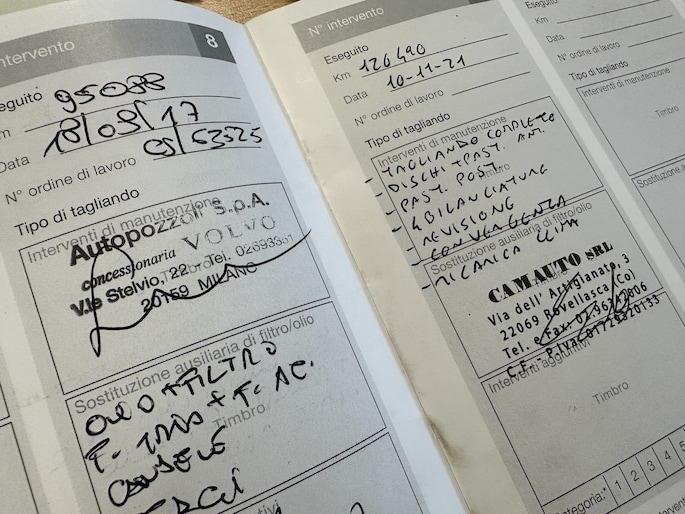 ntervento 8
eguito
m 95088
Data 18/09/17
N° ordine di lavoro CS/63525
Tipo di tagliando
Interventi di manutenzione
Autopozzoli S.p.A.
concessionaria VOLVO
V.le Stelvio, 22 - Tel.
20159 MILANO
Timbro
Sostituzione ausiliaria di filtro/olio
OLIO + FILTRO
+ F. AC.
Timbro
N° intervento
Eseguito
Km 126490
Data 10-11-21
N° ordine di lavoro
Tipo di tagliando
Interventi di manutenzione
- TAGLIANDO COMPLETO
DISCHI + PAST. ANT.
Timbro
- PAST. POST.
- 4 BILANCIATURE
- REVISIONE
- CONVERGENZA
Sostituzione ausiliaria di filtro/olio
- RICARICA CLIMA
CAMAUTO SRL
Via dell' Artigianato, 3
22069 Rovellasca (Co)
Tel. e Fax:
C.F. - P.Iva
Interventi aggiuntivi
Timbro
Categoria:* 1 2 3 4 5
Eseguito
Km
Data
N° ordine di lavoro
Tipo di tagliando
Interventi di manutenzione
Timbro
Sostituzione a